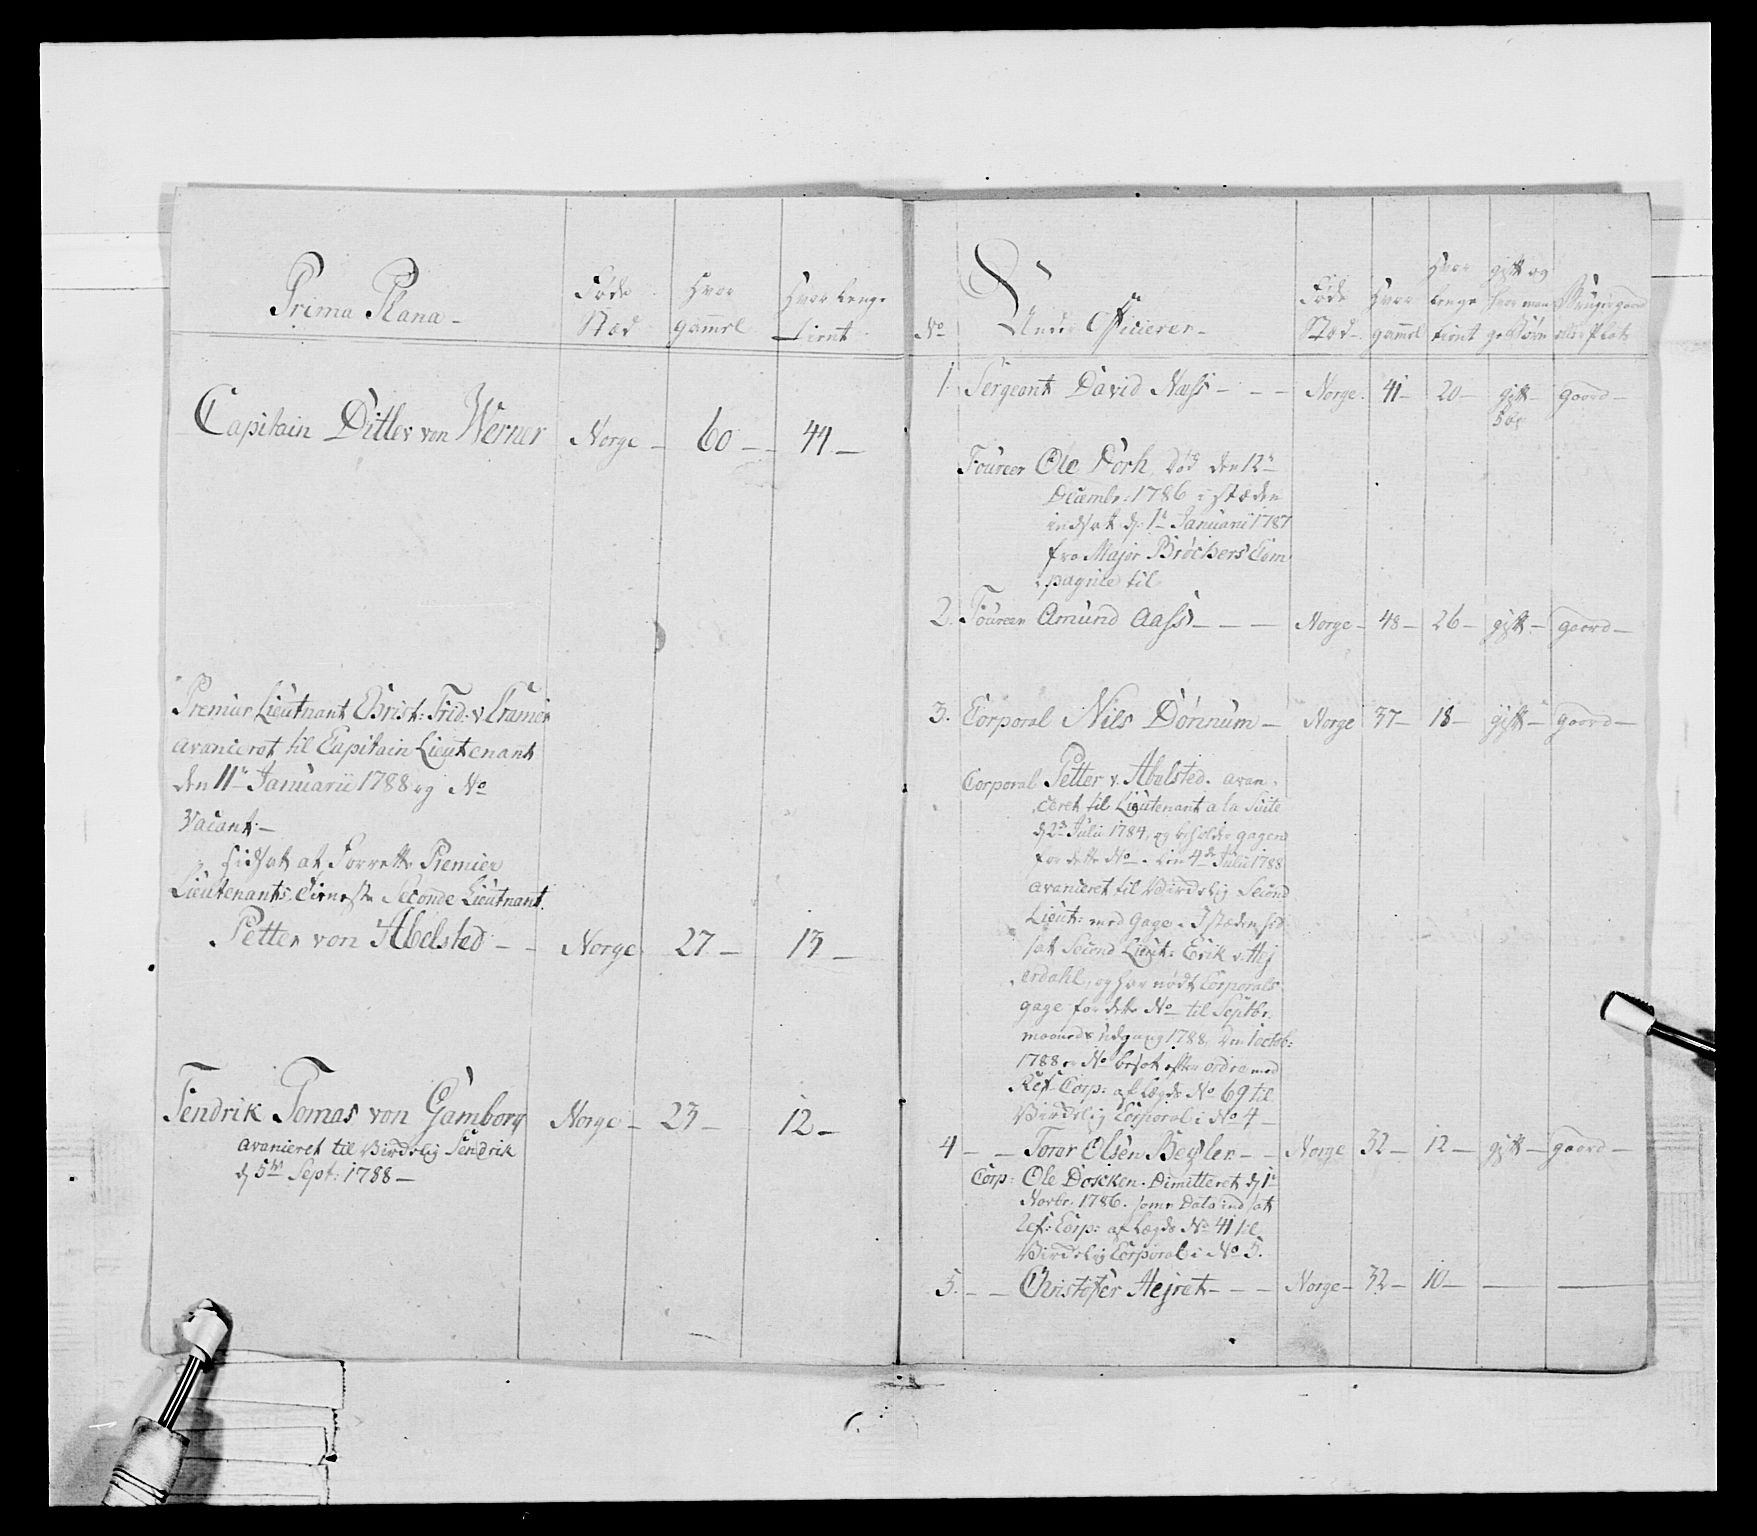 Prima Plana -
Føde
Stæd
Hvor
gam̄el
Hvor lenge
tient
Capitain Ditlev von Werner
Norge -
60 -
44 -
Premier Lieutnant Christ: Frid: v. Cramer
avanceret til Capitain Lieutenant
den 11te Januarii 1788 og No
Vacant. -
hidsat at Forrette Premier
Lieutenants tieneste Seconde Lieutnant.
Petter von Abelsted - -
Norge
27 -
13 -
Fendrik Tomas von Gamborg
Norge -
23 -
12 -
avanceret til Virdelig Fendrik
d 5te Sept: 1788 -
No
Under Officierer -
Føde
Stæd -
Hvor
gam̄el
Hvor
lenge
tient
gift og
hvor mange
Børn
1 Sergeant David Næss - - - Norge. 41 - 20 - gift - gaard -
Foureer Ole Dorh, død den 12te
Decembr: 1786 i stæden
indsat d: 1te Januarii 1787
fra Major Bröchers Com
pagnie til
2. Foureer Amund Aass - - - Norge - 48 - 26 - gift - gaard -
3. Corporal Nils Dönnum - Norge 37 - 18 - gift - gaard -
Corporal Petter v. Abelsted. avan
ceret til Lieutenant a la Suite
d 23 Julii 1784, og beholder gagen
for dette No. den 4de Julii 1788
avanceret til Virdelig Second
Lieut: med Gage. I stæden hid
sat Second Lieut: Erik v. Hej
erdahl, og har nødt Corporals
gage for dette No til Septbr.
maaneds udgang 1788. Den 1 octob:
1788 er No besat efter ordre med
Ref. Corp: af Lægds No 69 til
Virdelig Corporal i No 4 -
4 - - Torer Olsen Begler - - Norge 32 - 12 - gift - gaard -
Corp: Ole Doscken. Dimitteret d 1te
Novbr: 1786. samme Dato indsat
Ref: Corp: af Lægds No 41 til
Virdelig Corporal i No 5.
5. - - Christofer Hejret - - - Norge - 32 - 10 -